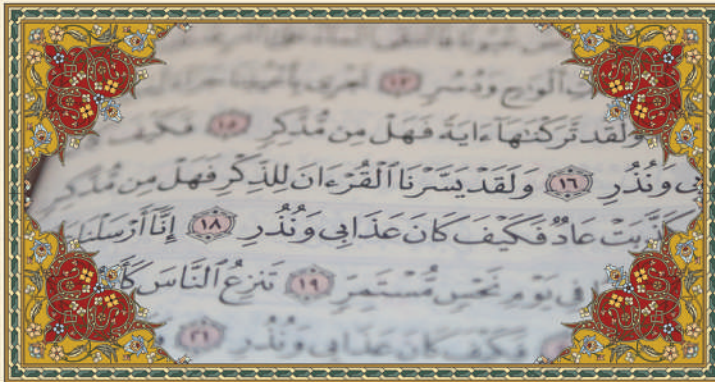 أَلْوَٰحٍ وَدُسُرٍ ١٣ تَجْرِى بِأَعْيُنِنَا جَزَآءً
وَلَقَد تَّرَكْنَٰهَآ ءَايَةً فَهَلْ مِن مُّدَّكِرٍ ١٥ فَكَيْفَ
وَنُذُرِ ١٦ وَلَقَدْ يَسَّرْنَا ٱلْقُرْءَانَ لِلذِّكْرِ فَهَلْ مِن مُّدَّكِرٍ
كَذَّبَتْ عَادٌ فَكَيْفَ كَانَ عَذَابِى وَنُذُرِ ١٨ إِنَّآ أَرْسَلْنَا
فِى يَوْمِ نَحْسٍ مُّسْتَمِرٍّ ١٩ تَنزِعُ ٱلنَّاسَ
فَكَيْفَ كَانَ عَذَابِى وَنُذُرِ ٢١